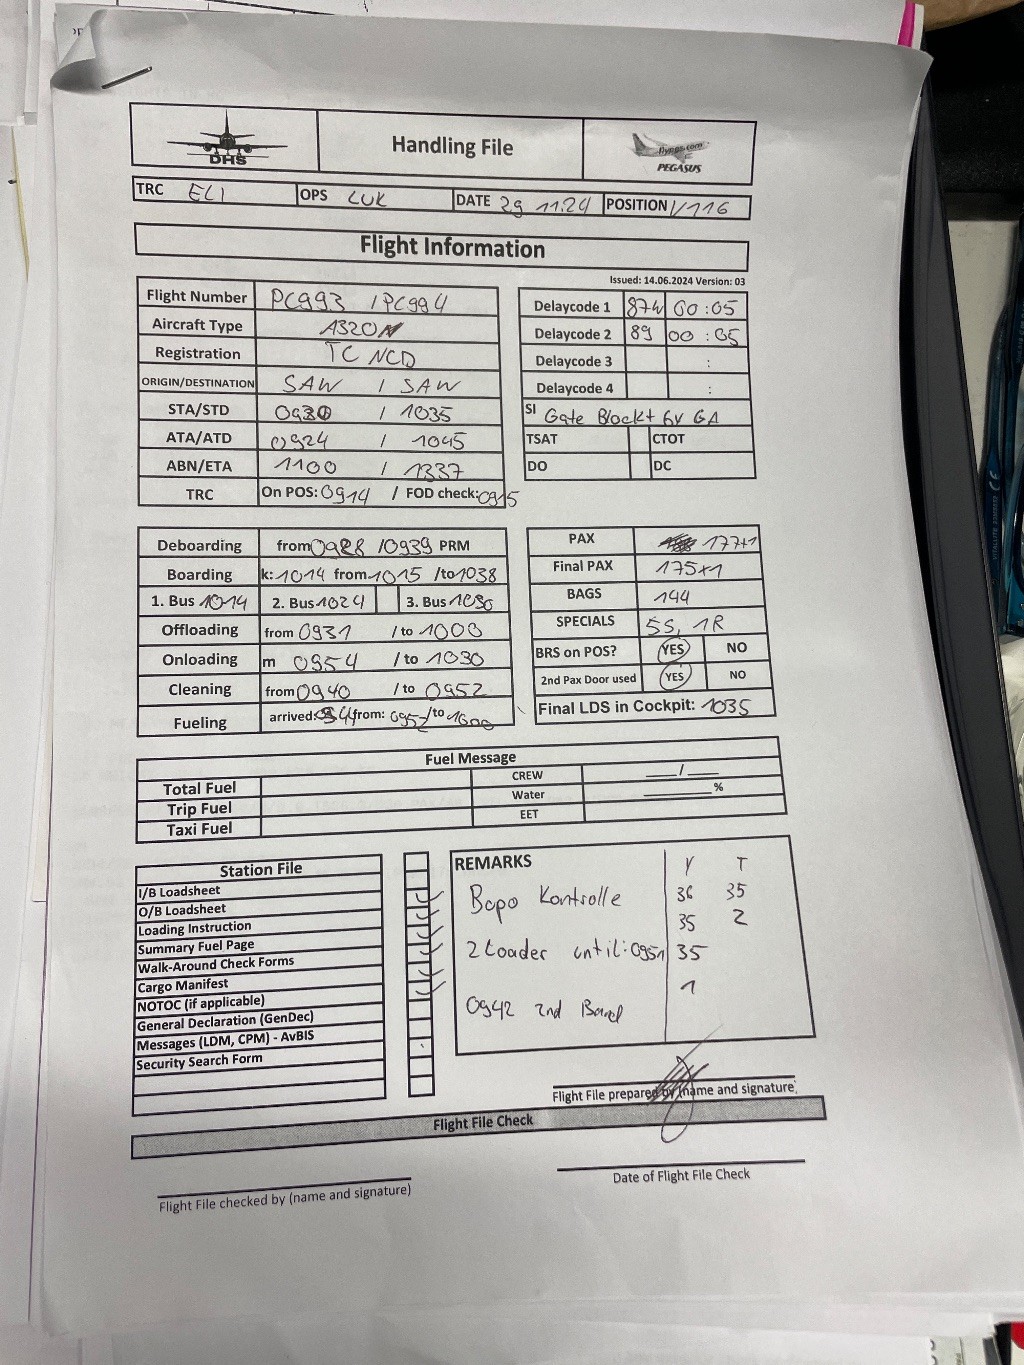 DHS
Handling File
flypgs.com
PEGASUS
TRC ELI OPS LUK DATE 29.11.24 POSITION V116
Flight Information
Issued: 14.06.2024 Version: 03
Flight Number PC993 / PC994
Aircraft Type A320N
Registration TC NCD
ORIGIN/DESTINATION SAW / SAW
STA/STD 0930 / 1035
ATA/ATD 0924 / 1045
ABN/ETA 1100 / 1337
TRC On POS: 0914 / FOD check: 0915
Delaycode 1 87W 00:05
Delaycode 2 89 00:05
Delaycode 3 :
Delaycode 4 :
SI Gate Blockt by GA
TSAT CTOT
DO DC
Deboarding from 0928 / 0939 PRM
Boarding k: 1014 from 1015 /to 1038
1. Bus 1014 2. Bus 1024 3. Bus 1030
Offloading from 0931 / to 1000
Onloading m 0954 / to 1030
Cleaning from 0940 / to 0952
Fueling arrived: 0944 from: 0957 /to
PAX 177+1
Final PAX 175+1
BAGS 144
SPECIALS 5S, 1R
BRS on POS? YES NO
2nd Pax Door used YES NO
Final LDS in Cockpit: 1035
Fuel Message
Total Fuel CREW __/__
Trip Fuel Water ____%
Taxi Fuel EET
Station File
I/B Loadsheet
O/B Loadsheet
Loading Instruction
Summary Fuel Page
Walk-Around Check Forms
Cargo Manifest
NOTOC (if applicable)
General Declaration (GenDec)
Messages (LDM, CPM) - AvBIS
Security Search Form
REMARKS Y T
Bopo Kontrolle 36 35
35 2
2 Loader until: 0951 35
1
0942 2nd
Flight File prepared by (name and signature)
Flight File Check
Flight File checked by (name and signature)
Date of Flight File Check